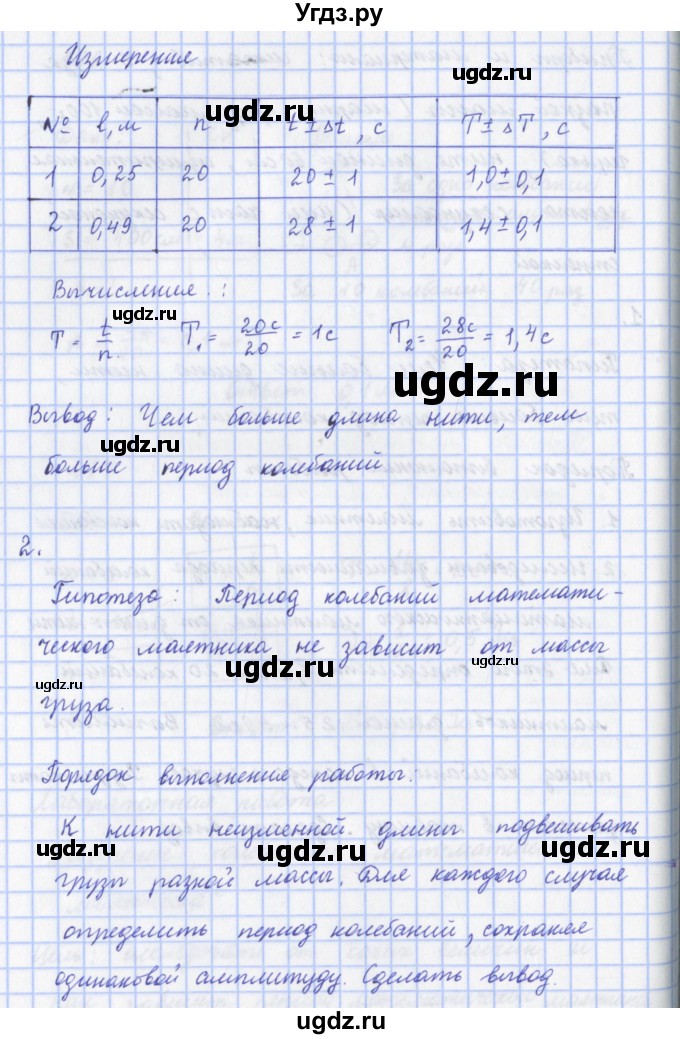 Угдз.ру
Измерения
ugdz.ru
ugdz.ru
№ l, м n t ± Δt, с T ± ΔT, с
1 0,25 20 20 ± 1 1,0 ± 0,1
2 0,49 20 28 ± 1 1,4 ± 0,1
ugdz.ru
Вычисления.:
ugdz.ru
T = t/n. T₁ = 20с/20 = 1с T₂ = 28с/20 = 1,4с
ugdz.ru
Вывод: Чем больше длина нити, тем
ugdz.ru
больше период колебаний
2.
Гипотеза: Период колебаний математи-
ugdz.ru
ческого маятника не зависит от массы
ugdz.ru
ugdz.ru
ugdz.ru
груза.
Порядок выполнения работы.
К нити неизменной длины подвешивать
ugdz.ru
ugdz.ru
грузы разной массы. Для каждого случая
определить период колебаний, сохраняя
одинаковой амплитуду. Сделать вывод.
ugdz.ru
ugdz.ru